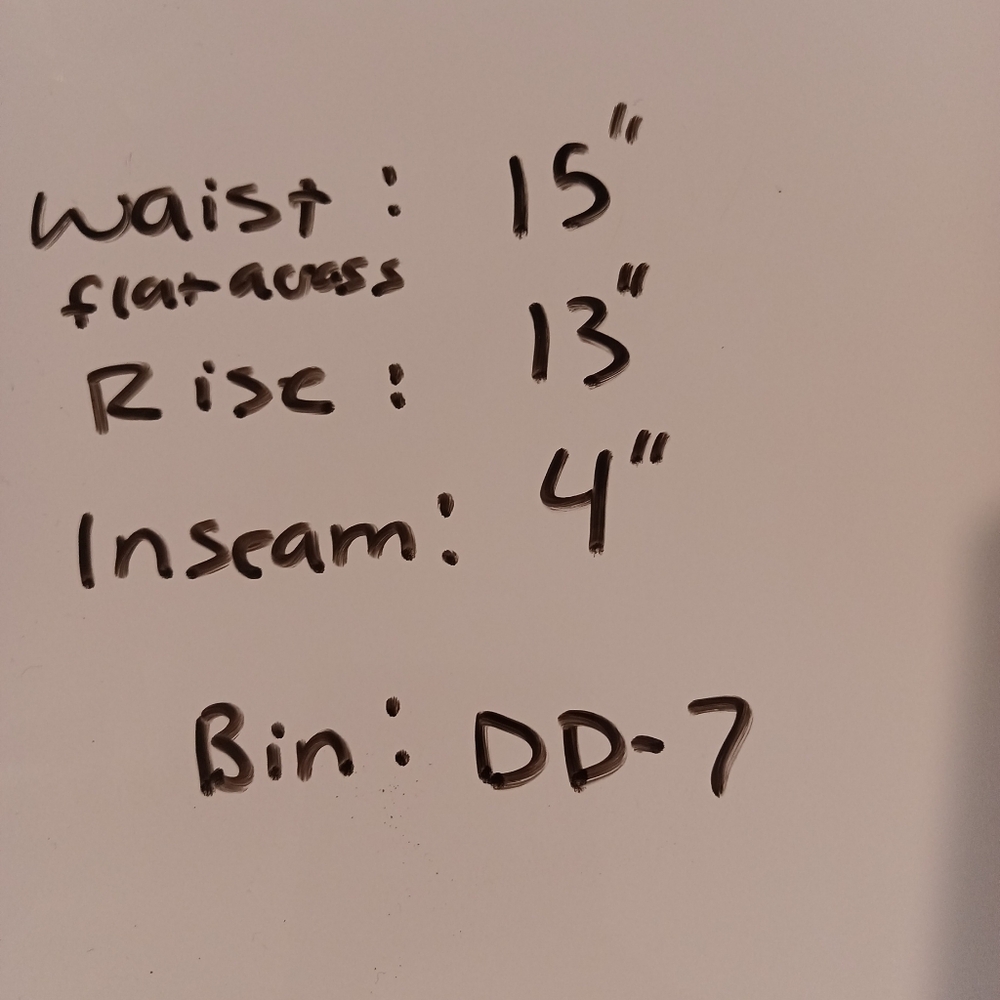 Waist: 15"
flat across
Rise: 13"
Inseam: 4"
Bin: DD-7